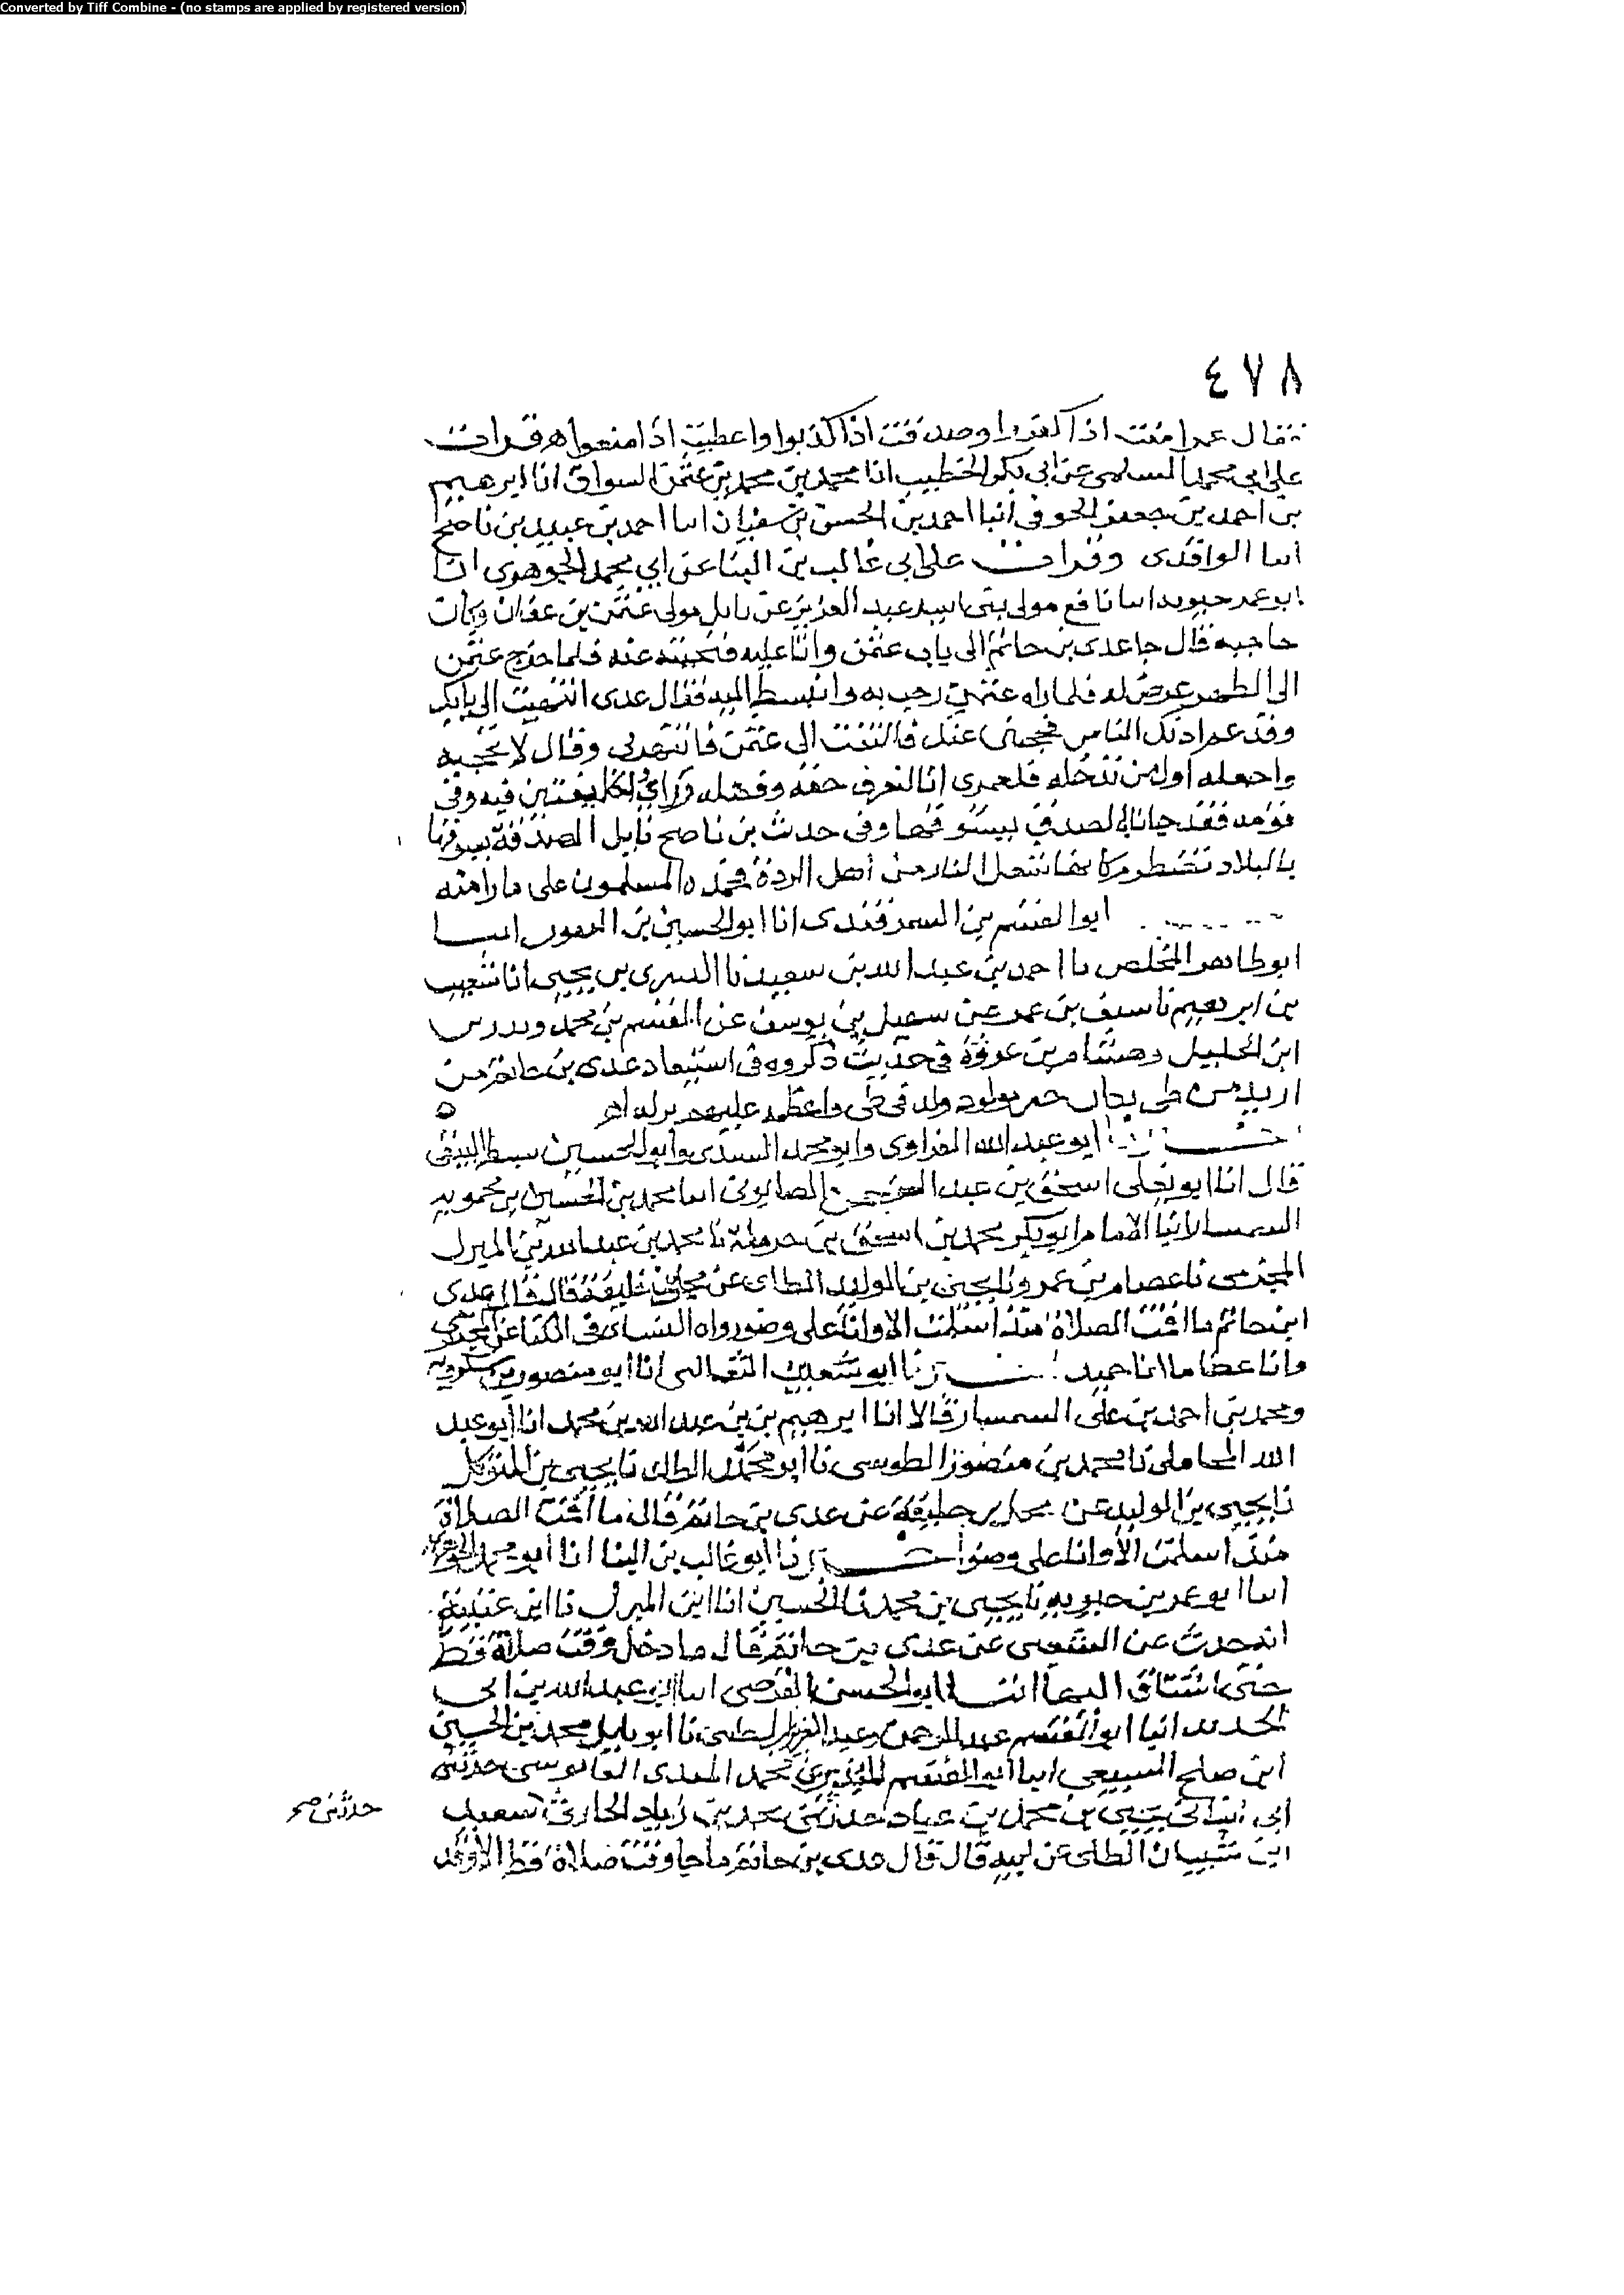 Converted by Tiff Combine - (no stamps are applied by registered version)
٤٧٨
فقال عمر امنت اذا كفروا وصدقت اذا كذبوا واعطيت اذا منعوا قرات
على ابي محمد السلمى عن ابى بكر الخطيب انا محمد بن محمد بن عثمن السواق انا ابرهيم
بن احمد بن جعفر الخوفى انبا احمد بن الحسن بن سفيان انبا احمد بن عبيد بن ناصح
انبا الواقدى وقرات على ابى غالب بن البنا عن ابي محمد الجوهرى انا
ابو عمر حيويه انبا نافع مولى بنى اسيد عبد العزيز عن نايل مولى عثمن بن عفان وكان
حاجبه قال جا عدى بن حاتم الى باب عثمن وانا عليه فنحيته عنه فلما خرج عثمن
الى الظهر عرض له فلما راه عثمن رحب به وانبسط اليه فقال عدى انتهيت الى بابك
وقد عم اذنك الناس فحجبنى عنك فالتفت الى عثمن فانتهرنى وقال لا تحجبه
واجعله اول من تدخله فلعمرى انا لنعرف حقه وفضله وراي الخليفتين فيه وفى
قومه فقد جانا بالصدقة يسوقها وفى حدث بن ناصح نايل الصدقة يسوقها
بالبلاد تضطرم كانها شعل النار من اهل الردة فحمده المسلمون على ما راو منه
ابو القسم بن السمرقندى انا ابو الحسين بن النقور انبا
ابو طاهر المخلص نا احمد بن عبد الله بن سعيد نا السرى بن يحيى انا شعيب
بن ابرهيم نا سيف بن عمر عن سهيل بن يوسف عن القسم بن محمد وبدر بن
ابن الخليل وهشام بن عروة فى حديث ذكروه فى استيعاد عدى بن حاتم من
ارتد من طى فكان خير مولود ولد فى طى واعظمه عليهم بركة
ابو عبد الله الفراوى وابو محمد السيدى وابو الحسين سبط البيهقى
قال انا ابو يعلى اسحق بن عبد الصابونى انبا محمد بن الحسين بن محمويه
السمسار انبا الامام ابو بكر محمد بن اسحق بن خزيمة نا محمد بن عبد الله بن المبرك
المخزمى نا عصام بن عمرو نا يحيى بن الوليد الطاى عن محل بن خليفة قال قال عدى
ابن حاتم ما اقمت الصلاة منذ اسلمت الا وانا على وضو رواه النساى فى الكنا عن المخرمى
وانا عصاما انا حميد نا ابو سعيد الثعالبى انا ابو منصور بن شكرويه
ومحمد بن احمد بن على السمسار قالا انا ابرهيم بن عبد الله بن محمد انا ابو عبد
الله المحاملى نا محمد بن منصور الطوسى نا ابو محمد الطاى نا يحيى بن المتوكل
نا يحيى بن الوليد عن محل بن خليفة عن عدى بن حاتم قال ما اقمت الصلاة
منذ اسلمت الا وانا على وضو نا ابو غالب بن البنا انا ابو محمد الجوهرى
انبا ابو عمر بن حيويه نا يحيى بن محمد نا الحسين انا ابن المبرك نا ابن عيينة
انه حدث عن الشعبى عن عدى بن حاتم قال ما دخل وقت صلاة قط
حتى اشتاق اليها ابو الحسن الفرضى انبا ابو عبد الله بن ابى
الحديد انبا ابو القسم عبد الرحمن وعبد العزيز نا ابو نايل محمد بن الحسين
ابن صلح السبيعى انبا ابو القسم المنذر بن محمد القابوسى حدثنى
ابى يحيى بن محمد بن عباد حدثنى محمد بن زياد الحارثى سعيد
حدثنى صح
ابن شيبان الطاى عن ابيه قال قال عدى بن حاتم ما جا وقت صلاة قط الا وقد